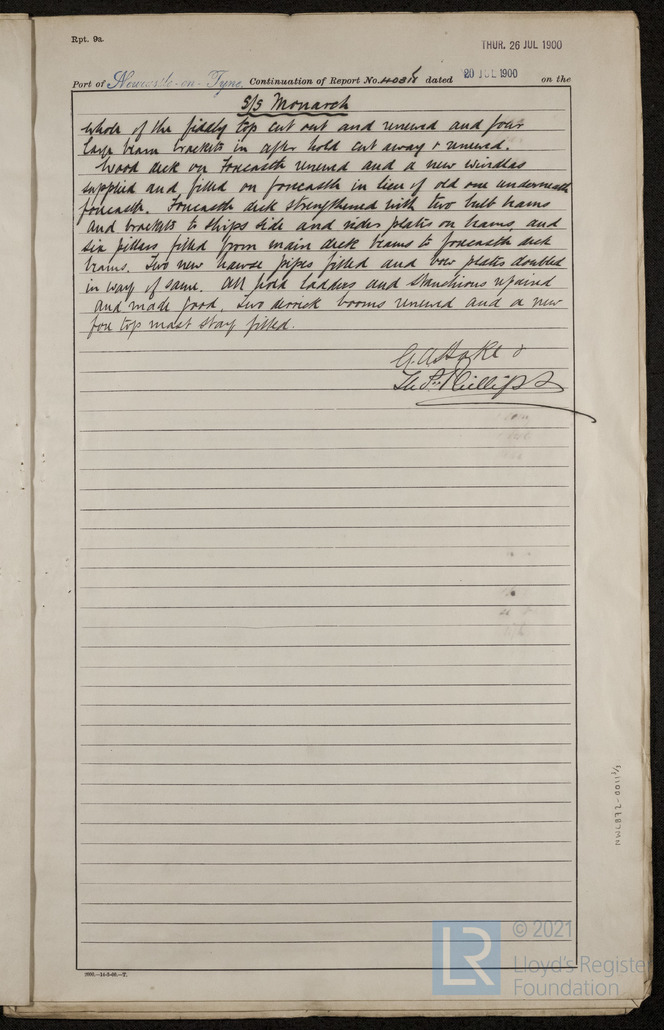 Rpt. 9a.
THUR. 26 JUL 1900
Port of Newcastle-on-Tyne Continuation of Report No. dated 20 JUL 1900 on the
S/S Monarch
whole of the fiddly top cut out and renewed and four
large beam brackets in after hold cut away & renewed.
Wood deck on Forecastle renewed and a new windlas
supplied and fitted on forecastle in lieu of old one underneath
forecastle. Forecastle deck strengthened with two belt beams
and brackets to ships side and rider plates on beams, and
six pillars fitted from main deck beams to forecastle deck
beams. Two new hawse pipes fitted and bow plates doubled
in way of same. All hold ladders and stanchions repaired
and made good. Two derrick booms renewed and a new
fore top mast stay fitted.
&
Phillips
NWL872-0011 1/3
© 2021
LR
Lloyd's Register
Foundation